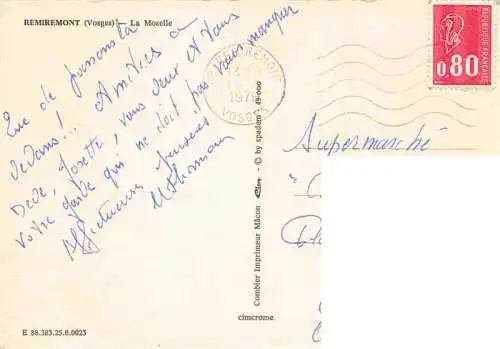 REMIREMONT (Vosges) — La Moselle
Que de poissons la
dedans!! Amitiés a
Dédé, Josette, vous deux et tous
votre garde qui ne doit pas vous manquer
Affectueuses pensées
M Thomann
REMIREMONT
1976
VOSGES
0,80
REPUBLIQUE FRANÇAISE
Supermarché
Combier Imprimeur Mâcon
"Cim" - © by spadem 49-000
cimscrome
E 88.383.25.0.0023